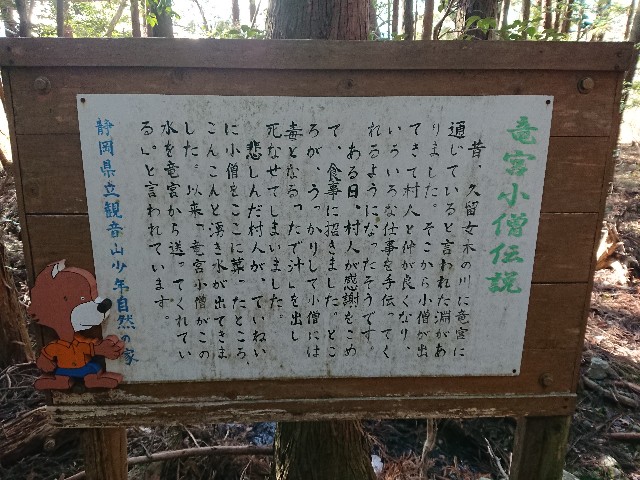 竜宮小僧伝説
昔、久留女木の川に竜宮に
通じていると言われた淵があ
りました。そこから小僧が出
てきて村人と仲が良くなり、
いろいろな仕事を手伝ってく
れるようになったそうです。
ある日、村人が感謝をこめ
て、食事に招きました。とこ
ろが、うっかりして小僧には
毒となる「たで汁」を出し
死なせてしまいました。
悲しんだ村人が、ていねい
に小僧をここに葬ったところ、
こんこんと湧き水が出てきま
した。以来「竜宮小僧がこの
水を竜宮から送ってくれてい
る。」と言われています。
静岡県立観音山少年自然の家